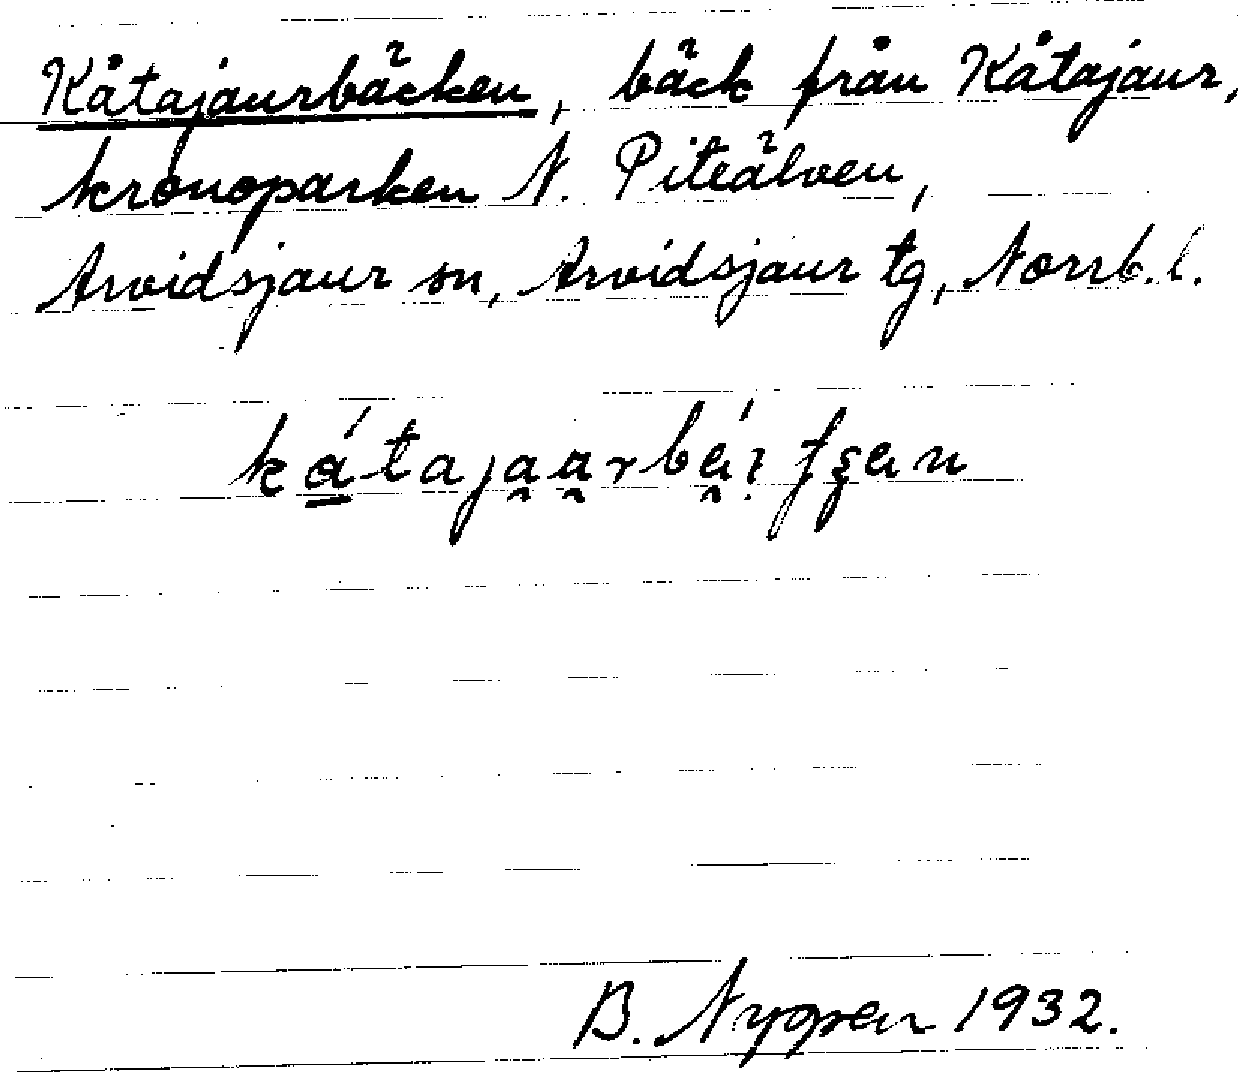 Kåtajaurbäcken, bäck från Kåtajaur,
kronoparken N. Piteälven,
Arvidsjaur sn, Arvidsjaur tg, Norrb. l.
B. Nygren 1932.